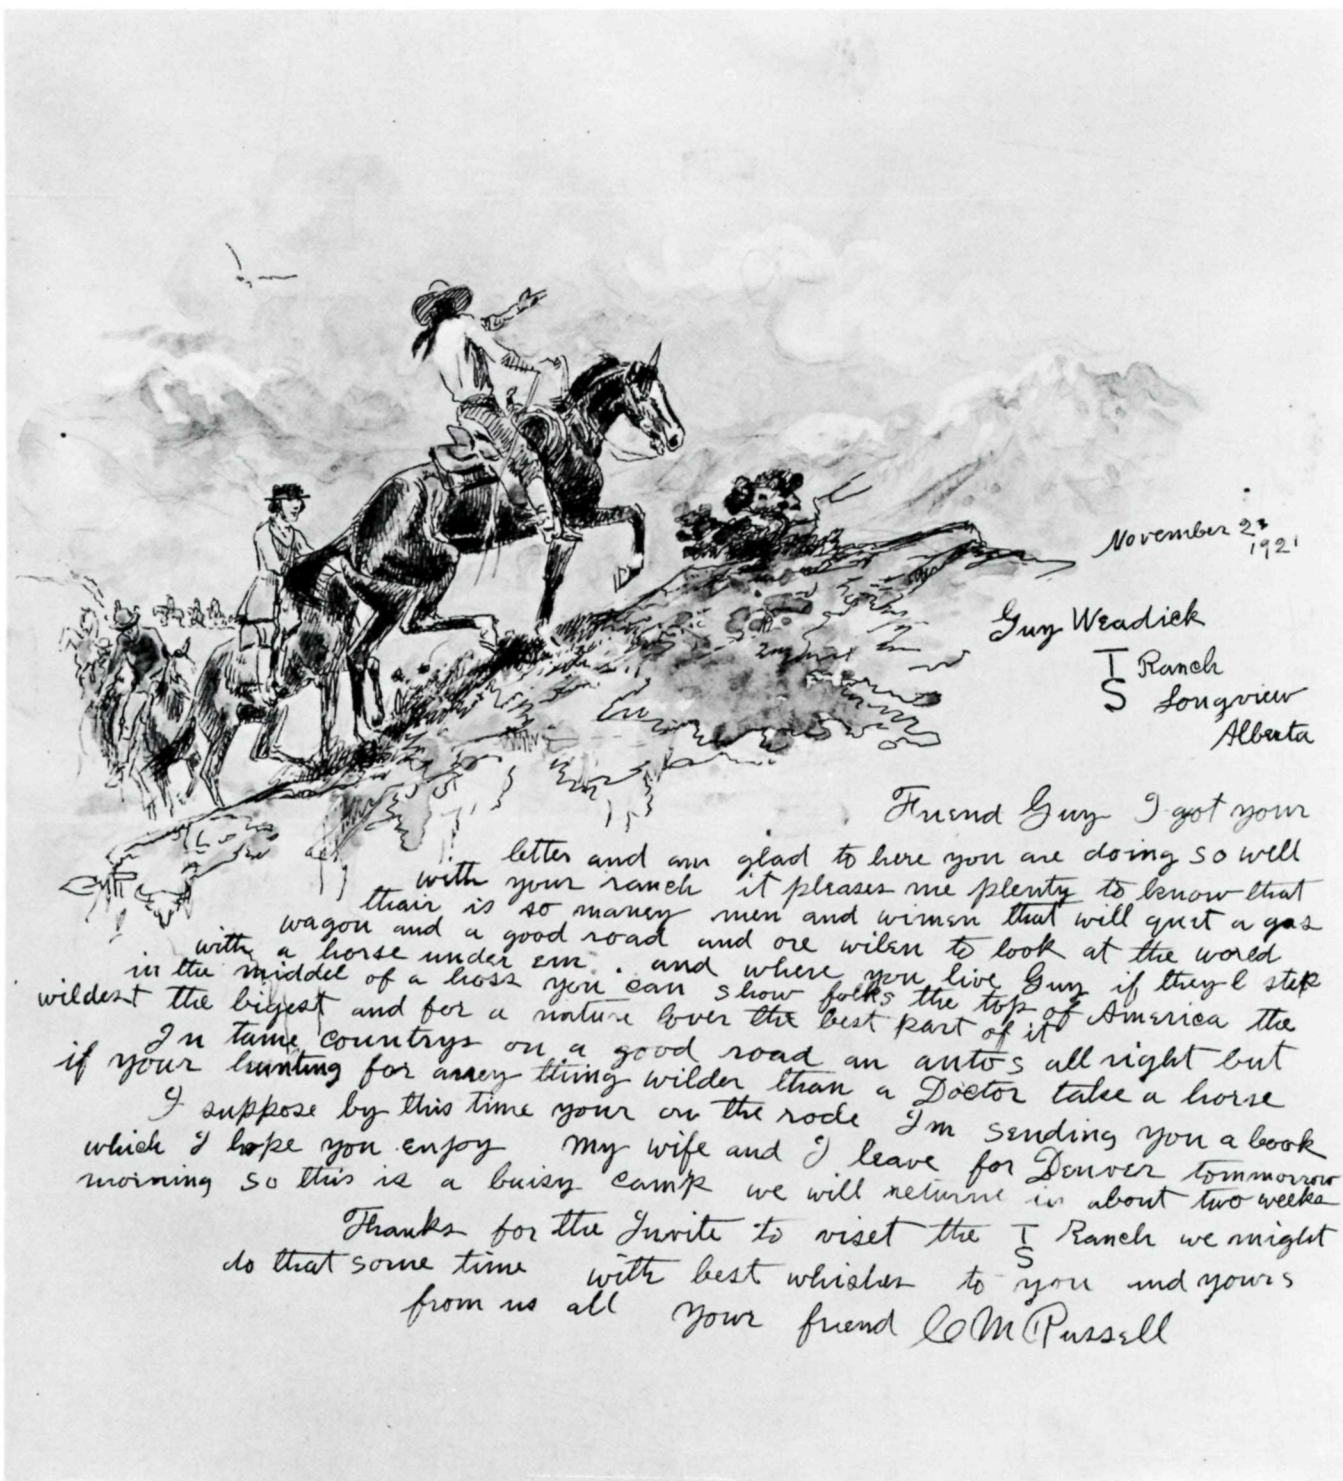 November 23
1921
Guy Weadick
T Ranch
S Longview
Alberta
Friend Guy I got your
letter and am glad to here you are doing so well
with your ranch it pleases me plenty to know that
thair is so maney men and wimen that will quit a gas
wagon and a good road and are wilen to look at the world
with a horse under em. and where you live Guy if they'l step
in the middel of a hoss you can show folks the top of America the
wildest the bigest and for a nature lover the best part of it
In tame countrys on a good road an autos all right but
if your hunting for aney thing wilder than a Doctor take a horse
I suppose by this time your on the rode Im sending you a book
which I hope you enjoy My wife and I leave for Denver tommorrow
morning so this is a buisy camp we will returne in about two weeks
Thanks for the Invite to viset the T S Ranch we might
do that some time with best whishes to you and yours
from us all your friend C M Russell